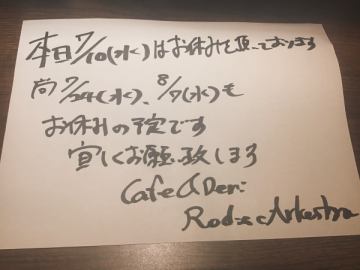 本日7/10(水)はお休みを頂いております
尚7/24(水)、8/7(水)も
お休みの予定です
宜しくお願い致します
Cafe & Deri
Rodxc Arkestra